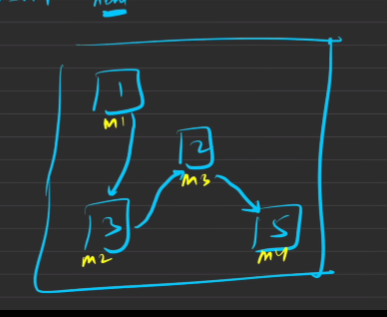 1
m1
2
m3
3
m2
5
m4